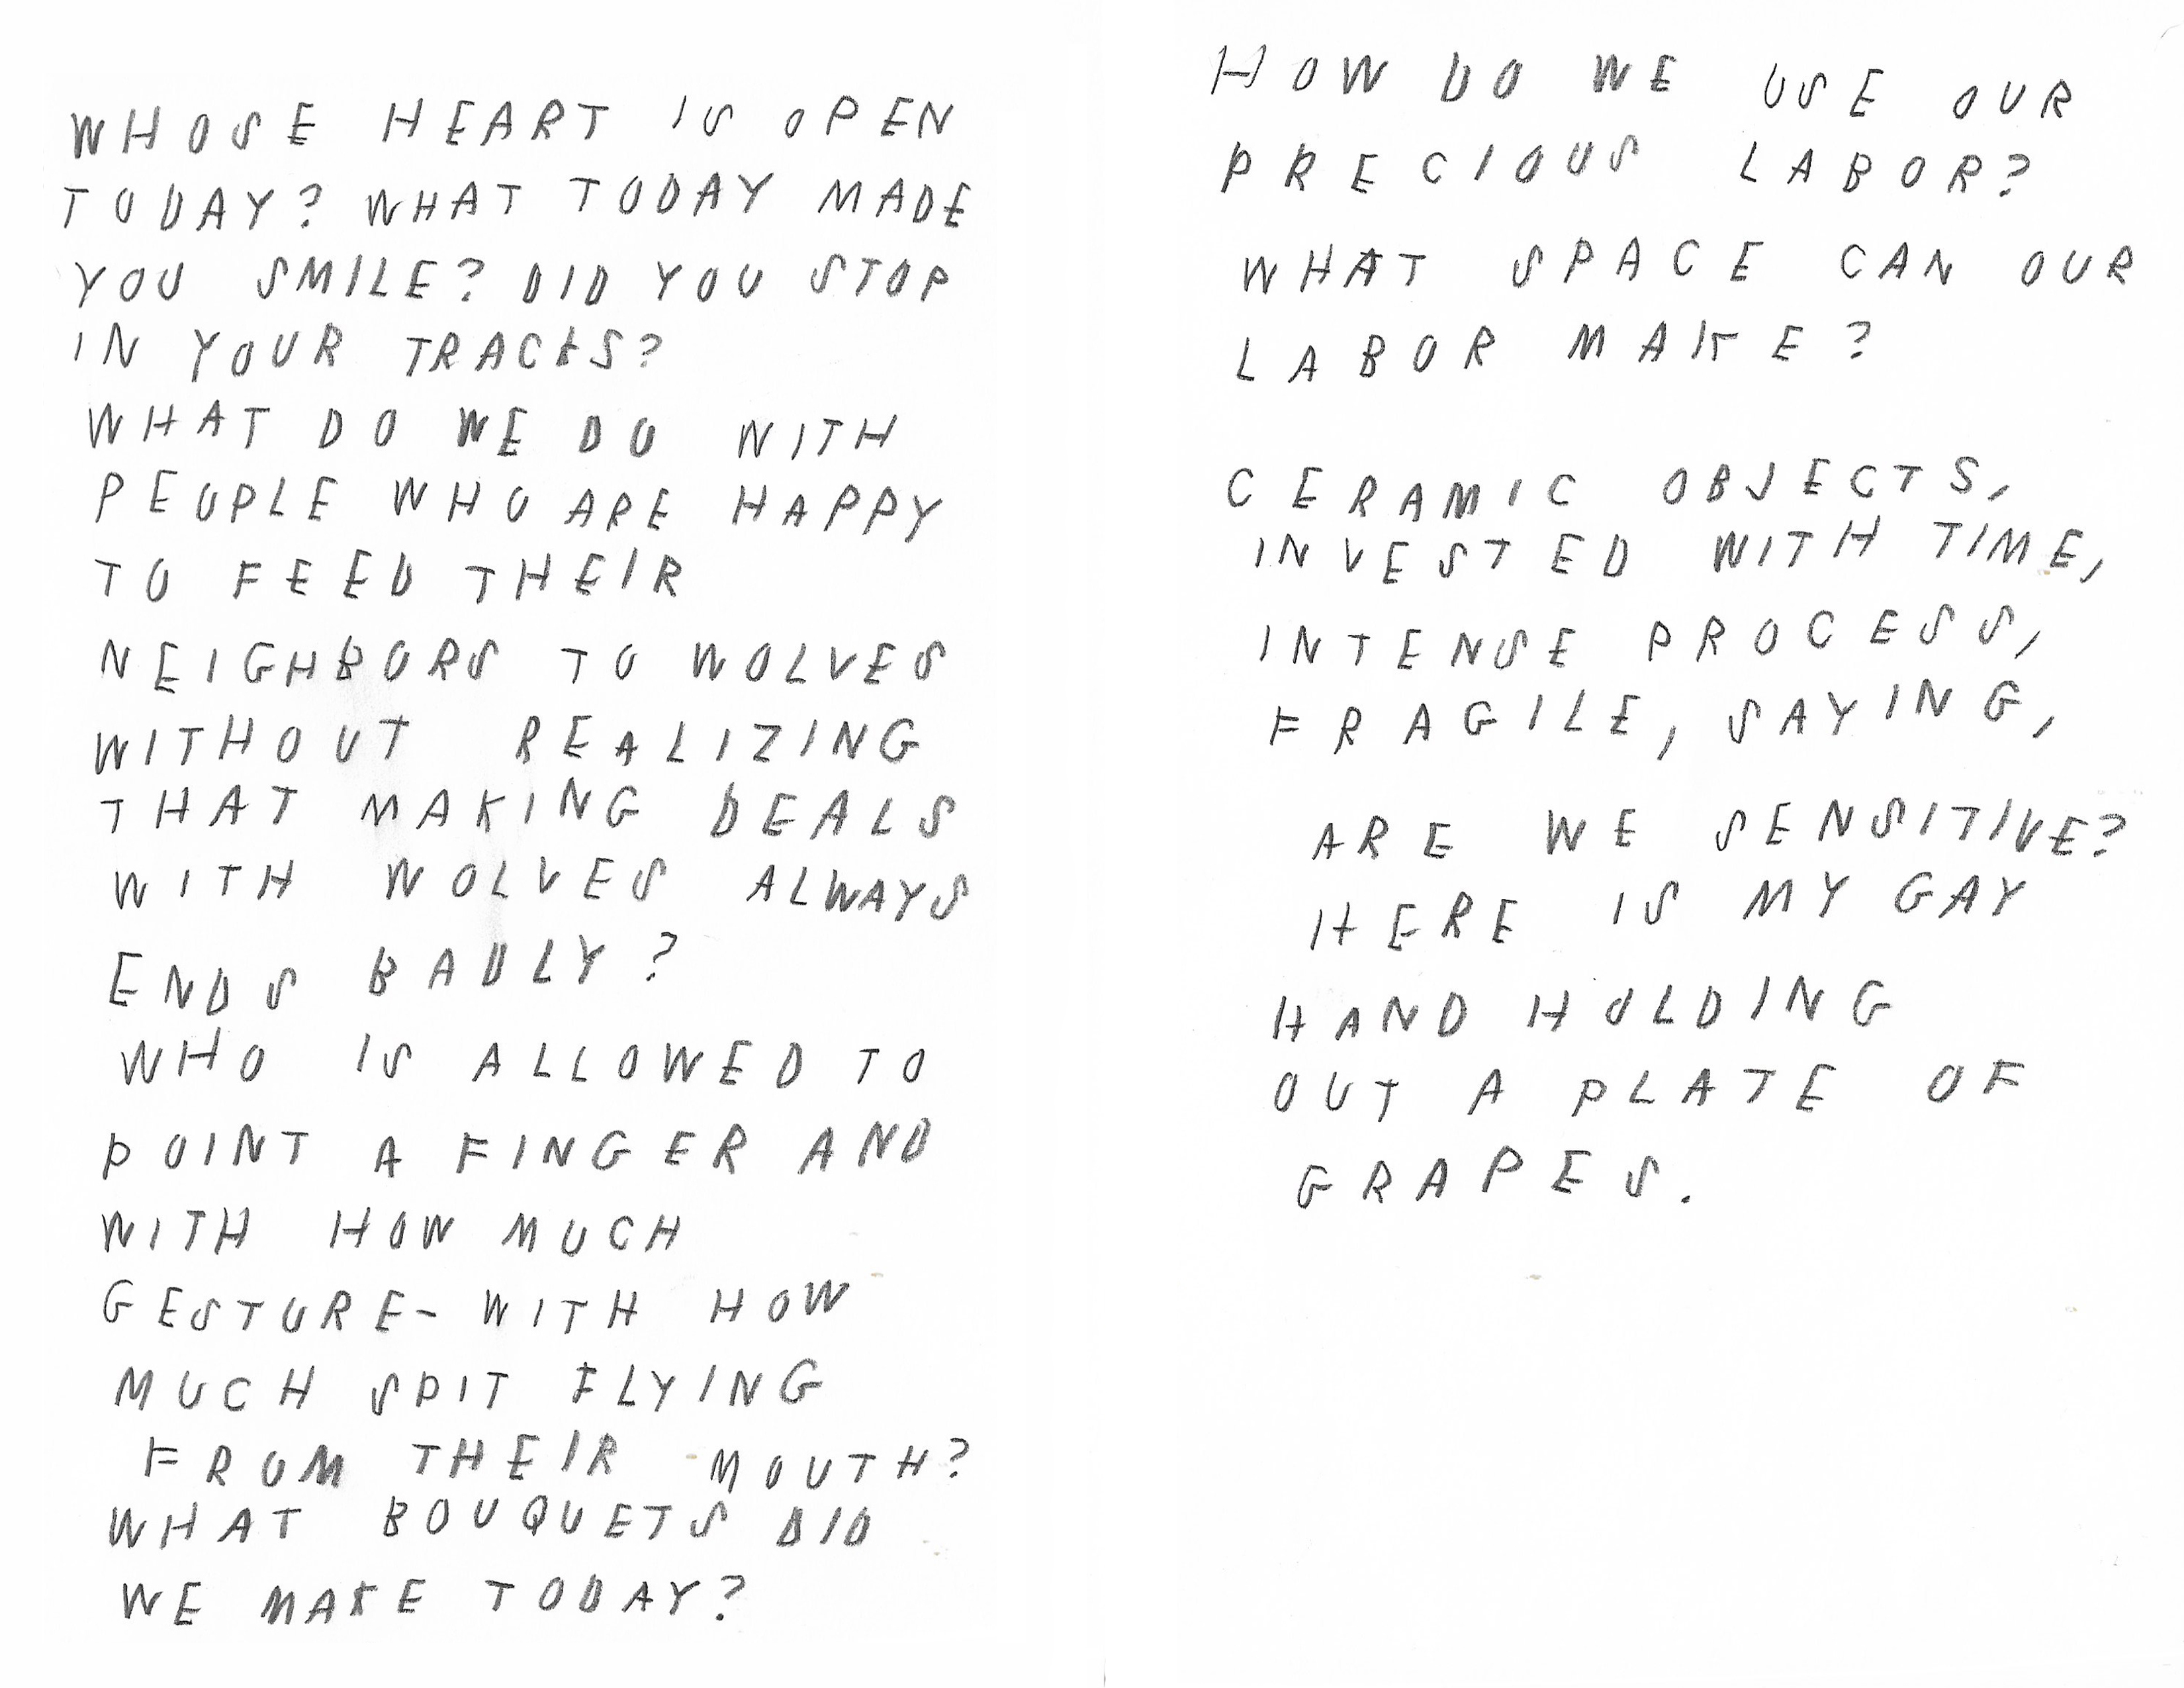 WHOSE HEART IS OPEN
TODAY? WHAT TODAY MADE
YOU SMILE? DID YOU STOP
IN YOUR TRACKS?
WHAT DO WE DO WITH
PEOPLE WHO ARE HAPPY
TO FEED THEIR
NEIGHBORS TO WOLVES
WITHOUT REALIZING
THAT MAKING DEALS
WITH WOLVES ALWAYS
ENDS BADLY?
WHO IS ALLOWED TO
POINT A FINGER AND
WITH HOW MUCH
GESTURE- WITH HOW
MUCH SPIT FLYING
FROM THEIR MOUTH?
WHAT BOUQUETS DID
WE MAKE TODAY?
HOW DO WE USE OUR
PRECIOUS LABOR?
WHAT SPACE CAN OUR
LABOR MAKE?
CERAMIC OBJECTS,
INVESTED WITH TIME,
INTENSE PROCESS,
FRAGILE, SAYING,
ARE WE SENSITIVE?
HERE IS MY GAY
HAND HOLDING
OUT A PLATE OF
GRAPES.